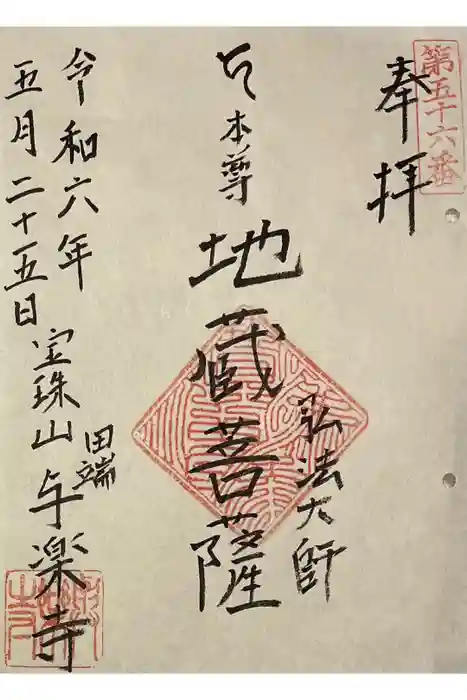 第五十六番
奉拝
弘法大師
本尊 地蔵菩薩
宝珠山 田端 与楽寺
令和六年
五月二十五日